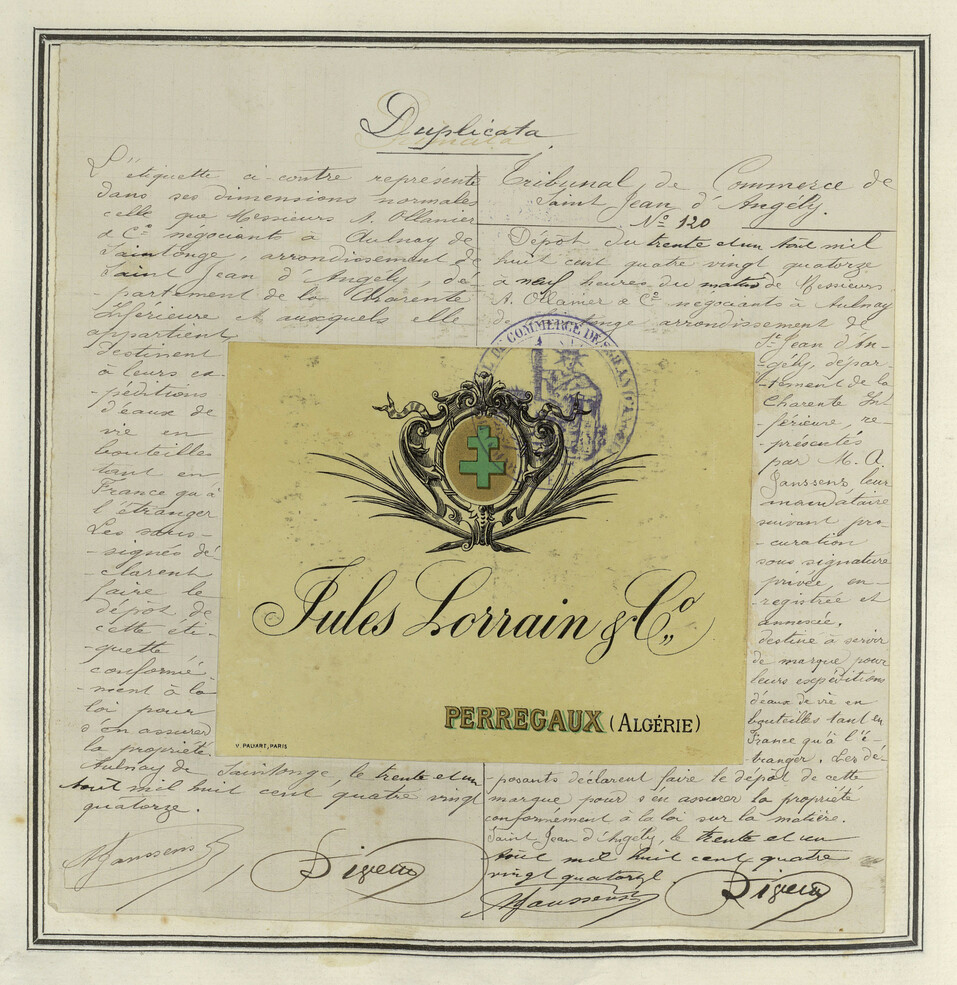 Duplicata
L'étiquette ci-contre représente
dans ses dimensions normales
celle que Messieurs A. Ollanier
& Cie négociants à Aulnay de
Saintonge, arrondissement de
Saint Jean d'Angély, dé-
-partement de la Charente
Inférieure et auxquels elle
appartient
destinent
à leurs ex-
-péditions
d'eaux de
vie en
bouteilles
tant en
France qu'à
l'étranger
Les sous-
-signés dé-
-clarent
faire le
dépôt de
cette éti-
-quette
conformé-
-ment à la
loi pour
s'en assurer
la propriété
Aulnay de Saintonge, le trente et un
Août mil huit cent quatre vingt
quatorze.
AJanssens
Tribunal de Commerce de
Saint Jean d'Angély.
No 120
Dépôt du trente et un Août mil
huit cent quatre vingt quatorze
à neuf heures du matin de Messieurs
A. Ollanier & Cie négociants à Aulnay
de Saintonge arrondissement de
St Jean d'An-
-gély, dépar-
-tement de la
Charente In-
-férieure, re-
-présentés
par M. A.
Janssens leur
mandataire
suivant pro-
-curation
sous signature
privée, en-
-registrée et
annexée.
destiné à servir
de marque pour
leurs expéditions
d'eaux de vie en
bouteilles tant en
France qu'à l'é-
-tranger. Les dé-
-posants déclarent faire le dépôt de cette
marque pour s'en assurer la propriété
conformément à la loi sur la matière.
Saint Jean d'Angély, le trente et un
Août mil huit cent quatre
vingt quatorze.
AJanssens
DE COMMERCE DE ST JEAN
Jules Lorrain & Co
PERREGAUX (ALGÉRIE)
V. PALYART, PARIS